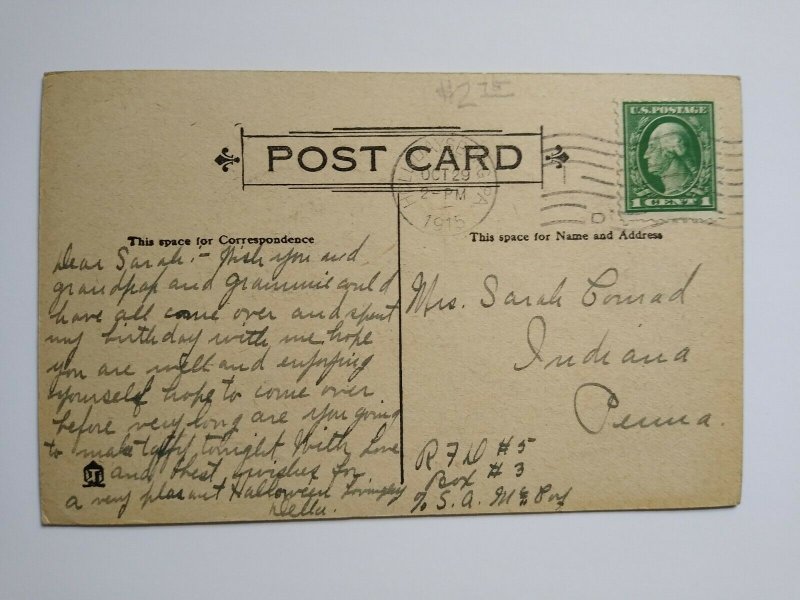 $2.75
U.S. POSTAGE
1 CENT 1
POST CARD
OCT 29
2-PM
1915
PA
This space for Correspondence
This space for Name and Address
Dear Sarah:- Wish you and
grandpap and grammie could
have all come over and spent
my birthday with me hope
you are well and enjoying
yourself hope to come over
before very long are you going
to make taffy tonight. With Love
and best wishes for
a very pleasant Halloween Lovingly
Della.
Mrs. Sarah Conrad
Indiana
Penna.
R F D #5
Box #3
% S. A. McCoy